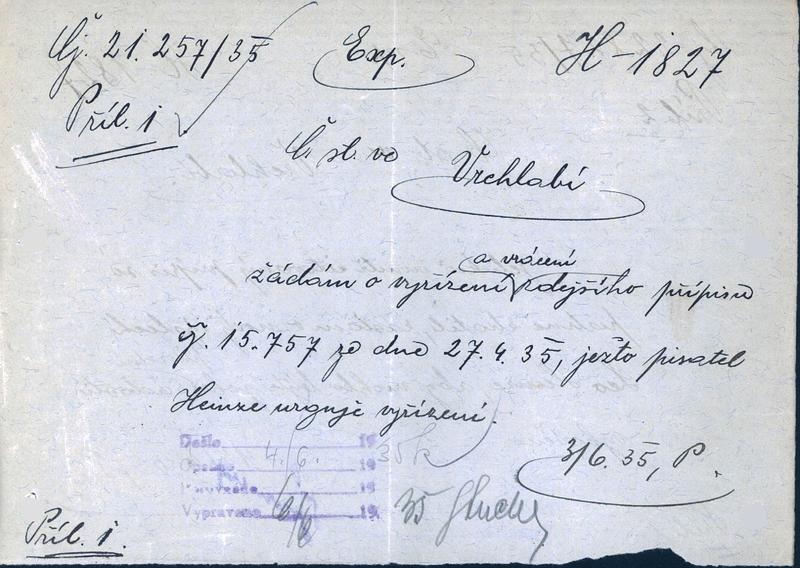 Čj. 21.257/35 Exp. H-1827
Příl. 1
Č. st. ve Vrchlabí
a vrácení
žádám o vyřízení zdejšího přípisu
čj. 15.757 ze dne 27.4.35, ježto pisatel
Heinze urguje vyřízení.
3/6.35, P.
Došlo 19
Opsáno 4./6. 19 35 k
19
Vypraveno 6/6 19 35
Příl. 1.